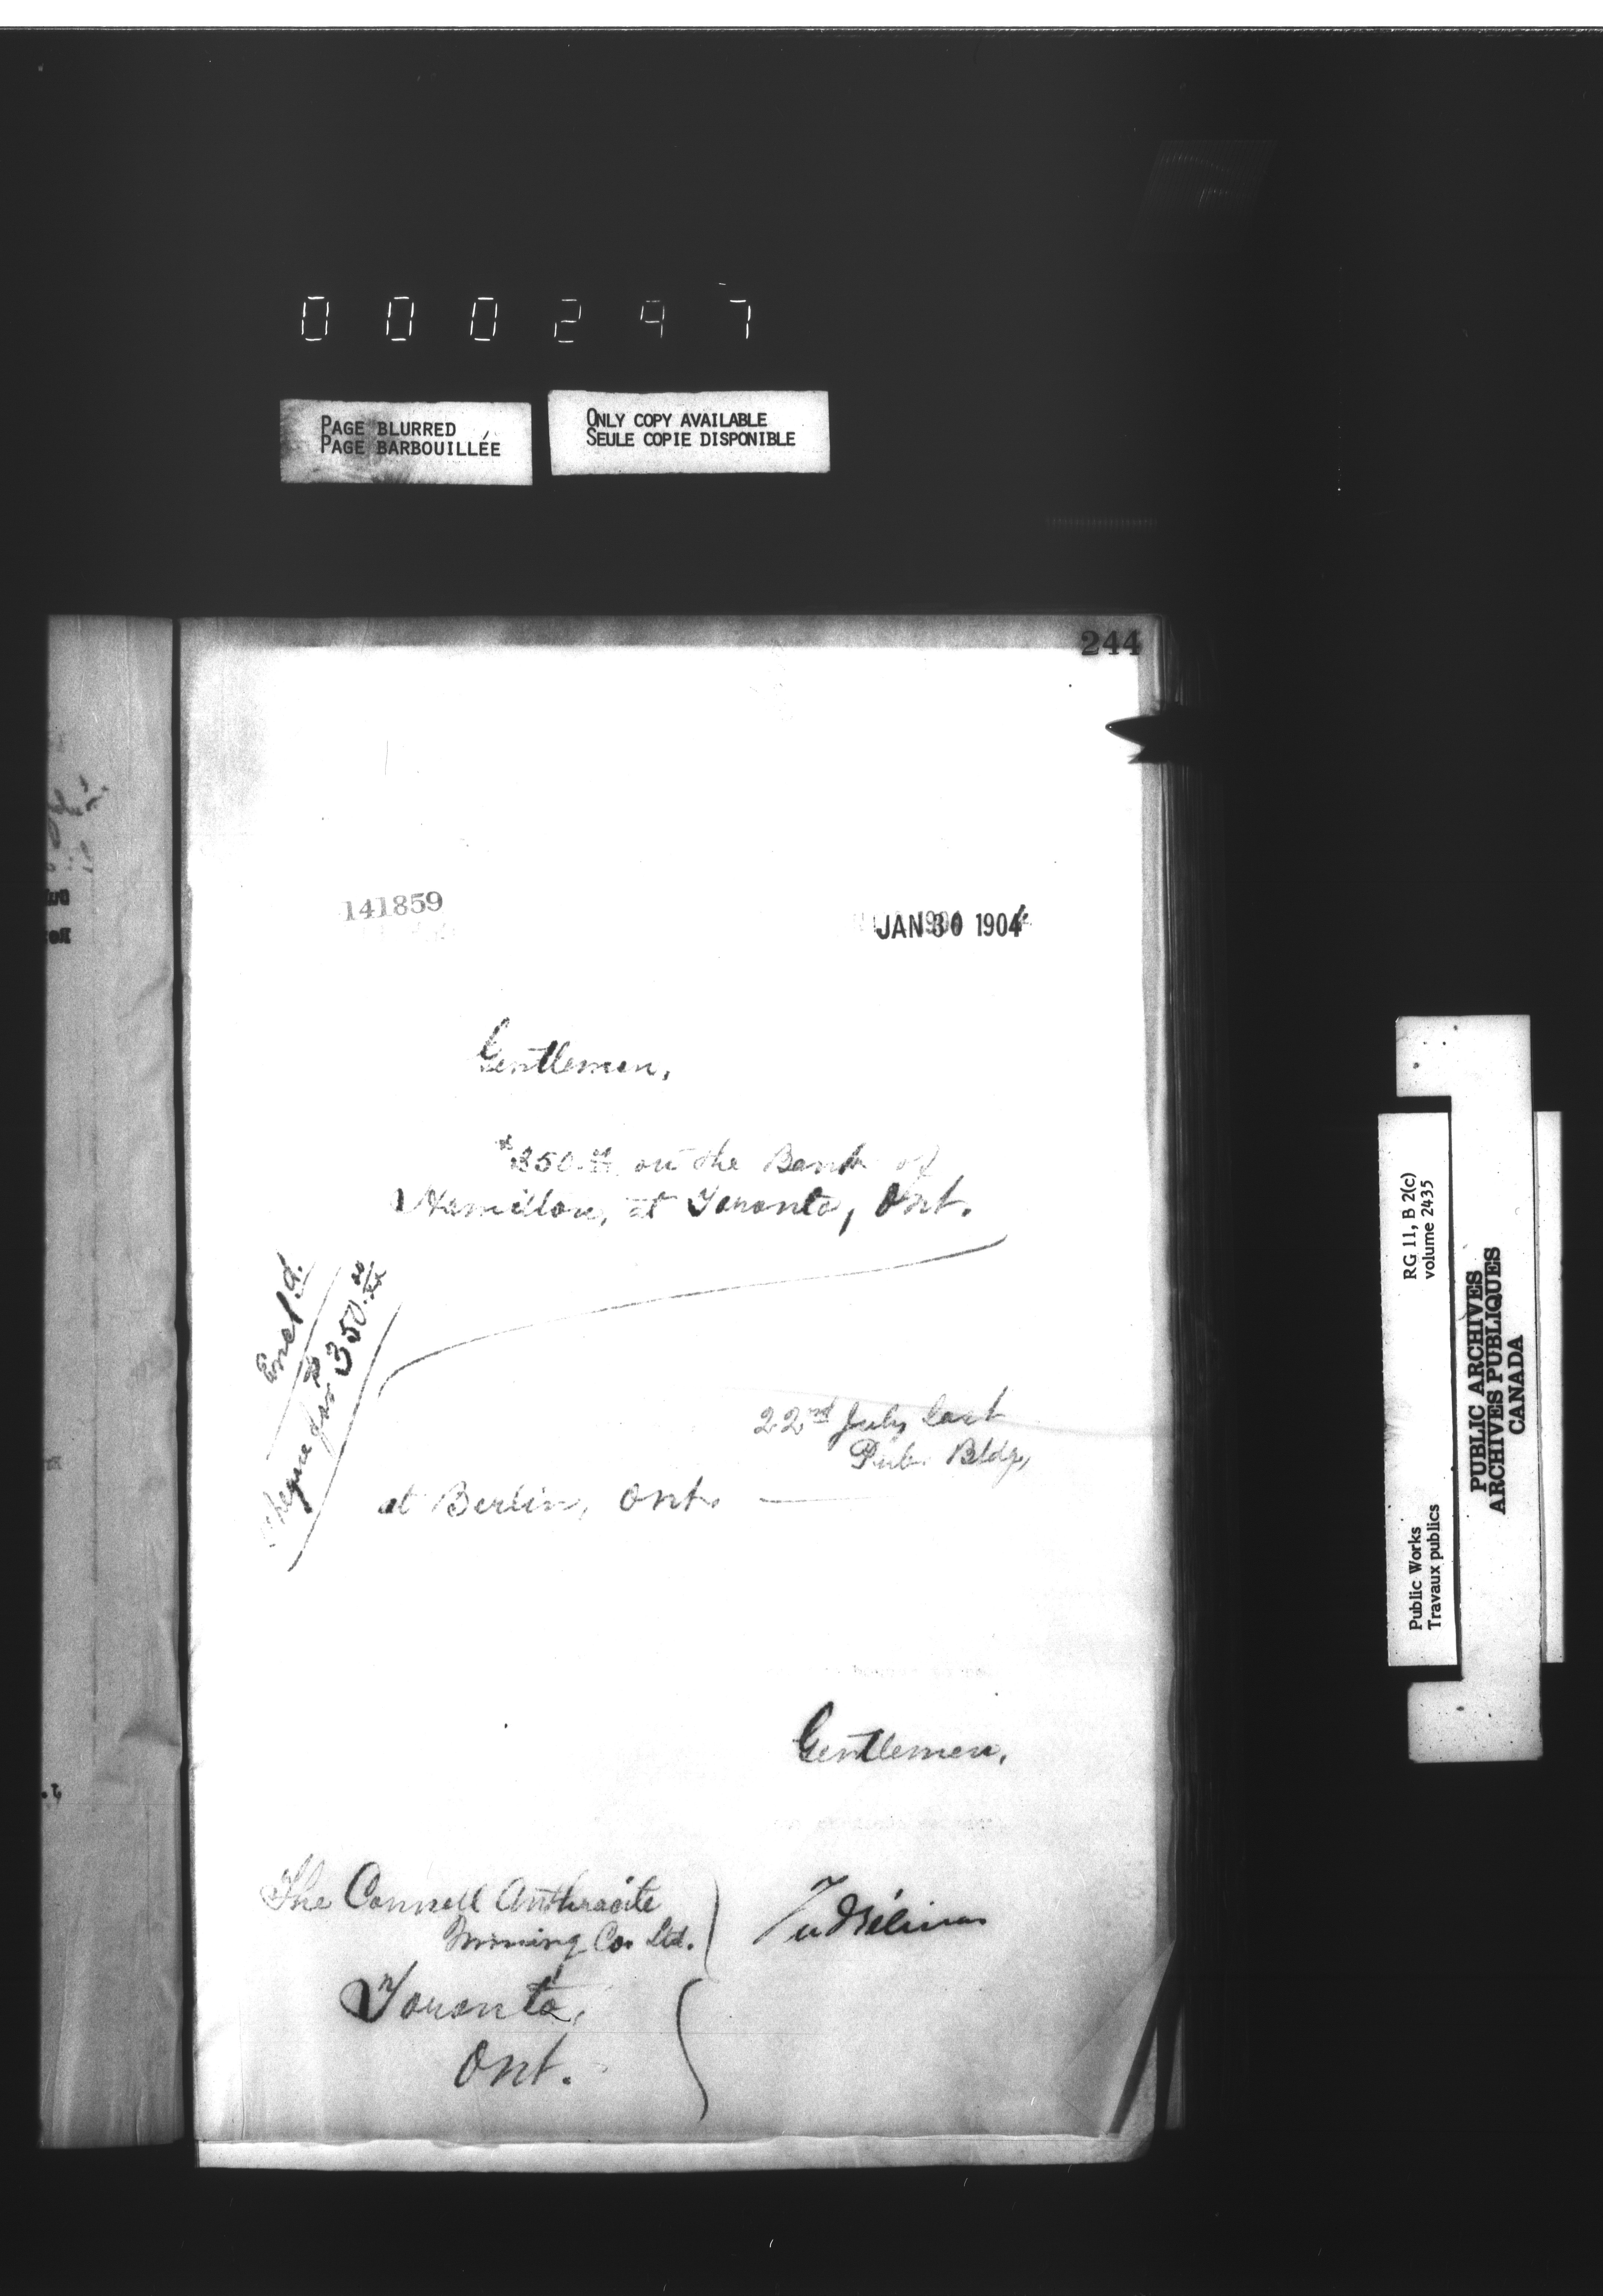 000297
PAGE BLURRED
PAGE BARBOUILLÉE
ONLY COPY AVAILABLE
SEULE COPIE DISPONIBLE
244
141859
JAN 30 1904
Gentlemen,
$350.00 on the Bank of
Hamilton, at Toronto, Ont.
Encl'd.
Cheque for $350.00
22nd July last
Pub. Bldg,
at Berlin, Ont.
Gentlemen,
The Connell Anthracite
Mining Co. Ltd.
Toronto,
Ont.
RG 11, B 2(c)
volume 2435
Public Works
Travaux publics
PUBLIC ARCHIVES
ARCHIVES PUBLIQUES
CANADA